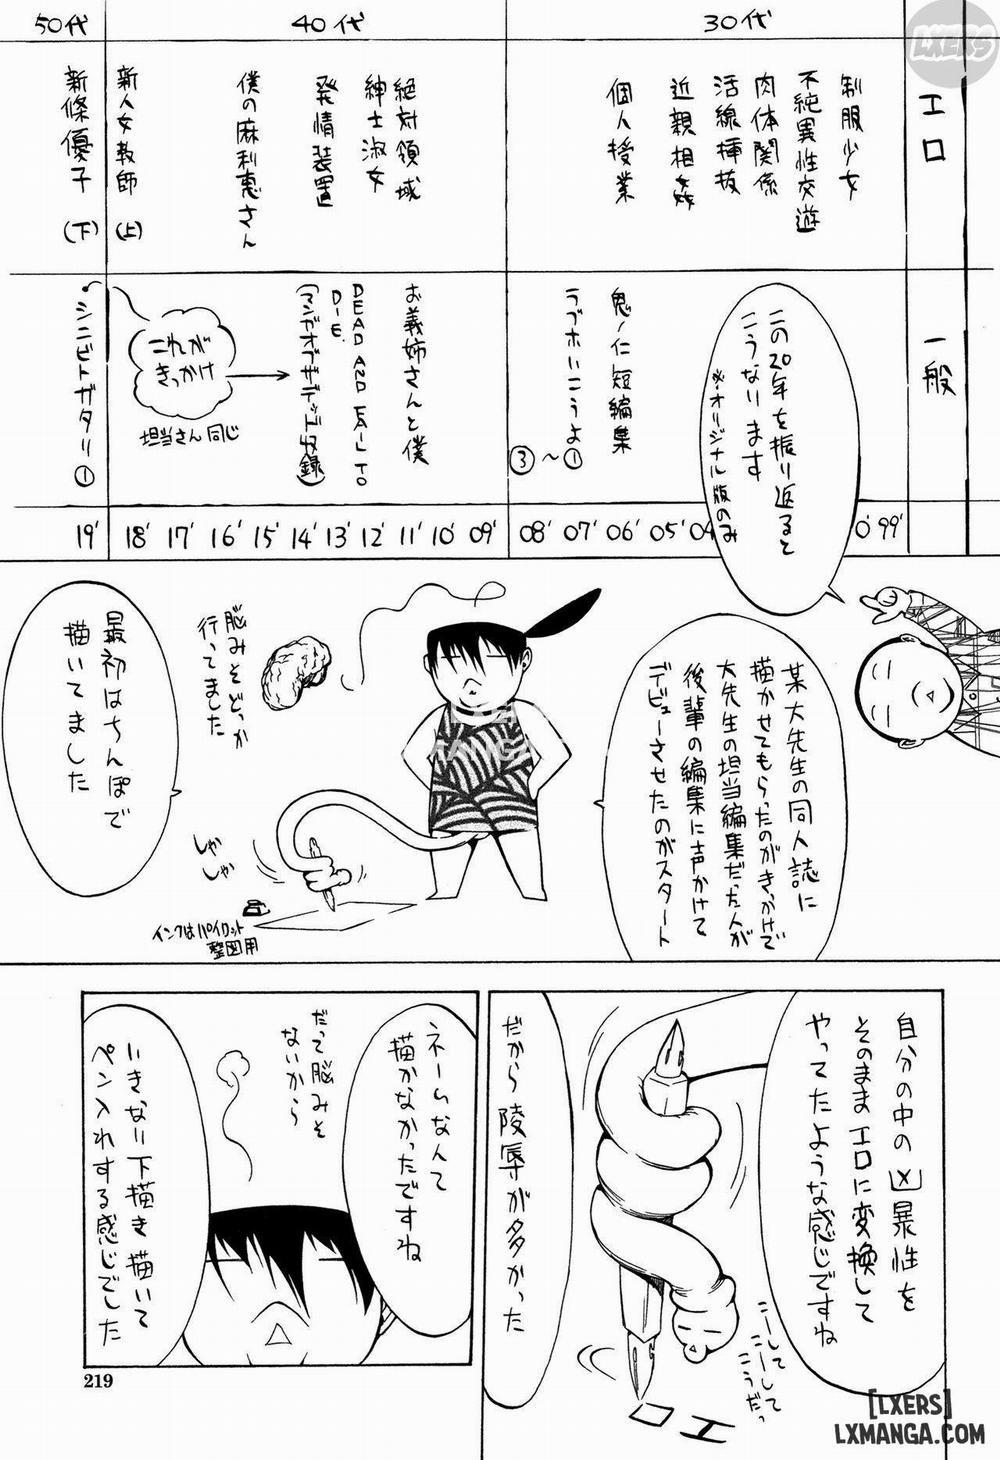 LXERS
30代
40代
50代
エロ
制服少女
不純異性交遊
肉体関係
活線挿抜
近親相姦
個人授業
絶対領域
紳士淑女
発情装置
僕の麻利恵さん
新人女教師
(上)
新條優子
(下)
一般
鬼ノ仁短編集
ラブホいこうよ①
〜
③
お義姉さんと僕
DEAD AND FAIL TO
DIE.
(マンガオブザデッド収録)
これが
きっかけ
担当さん同じ
シニビトガタリ①
99'
0'
04
05'
06'
07'
08'
09'
10'
11'
12'
13'
14'
15'
16'
17'
18'
19'
この20年を振り返ると
こうなります
※オリジナル版のみ
某大先生の同人誌に
描かせてもらったのがきっかけで
大先生の担当編集だった人が
後輩の編集に声かけて
デビューさせたのがスタート
脳みそどっか
行ってました
最初はちんぽで
描いてました
しゃか
しゃか
インクはパイロット
製図用
MANGA
自分の中の凶暴性を
そのままエロに変換して
やってたような感じですね
だから陵辱が多かった
こーして
こーして
こうだっ
エロ
ネームなんて
描かなかったですね
だって脳みそ
ないから
いきなり下描き描いて
ペン入れする感じでした
219
[LXERS]
LXMANGA.COM